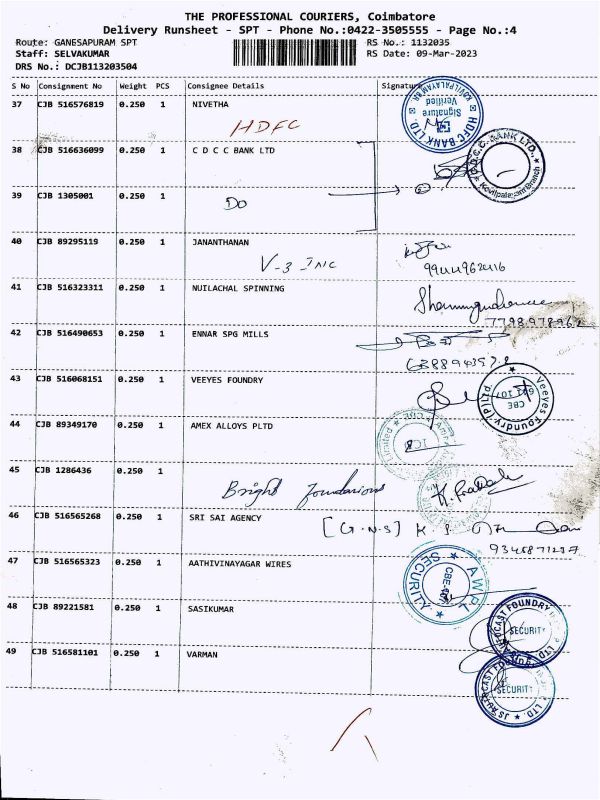 THE PROFESSIONAL COURIERS, Coimbatore
Delivery Runsheet - SPT - Phone No.:0422-3505555 - Page No.:4
Route: GANESAPURAM SPT RS No.: 1132035
Staff: SELVAKUMAR RS Date: 09-Mar-2023
DRS No.: DCJB113203504
S No Consignment No Weight PCS Consignee Details Signature
37 CJB 516576819 0.250 1 NIVETHA
HDFC
HDFC BANK LTD. KOVILPALAYAM BR Signature Verified
38 CJB 516636099 0.250 1 C D C C BANK LTD
C.D.C.C. BANK LTD., Kovilpalayam Branch
39 CJB 1305001 0.250 1
Do
40 CJB 89295119 0.250 1 JANANTHANAN
V-3 INC
9944962416
41 CJB 516323311 0.250 1 NUILACHAL SPINNING
7798978962
42 CJB 516490653 0.250 1 ENNAR SPG MILLS
43 CJB 516068151 0.250 1 VEEYES FOUNDRY
Veeyes Foundry (P) Ltd. CBE 641 107
44 CJB 89349170 0.250 1 AMEX ALLOYS PLTD
45 CJB 1286436 0.250 1
Bright Foundarious
K. Prakash
46 CJB 516565268 0.250 1 SRI SAI AGENCY
[G.N.S]
47 CJB 516565323 0.250 1 AATHIVINAYAGAR WIRES
A.W.P.L SECURITY
48 CJB 89221581 0.250 1 SASIKUMAR
JS AUTOCAST FOUNDRY LTD. SECURITY
49 CJB 516581101 0.250 1 VARMAN
JS AUTOCAST FOUNDRY LTD. SECURITY